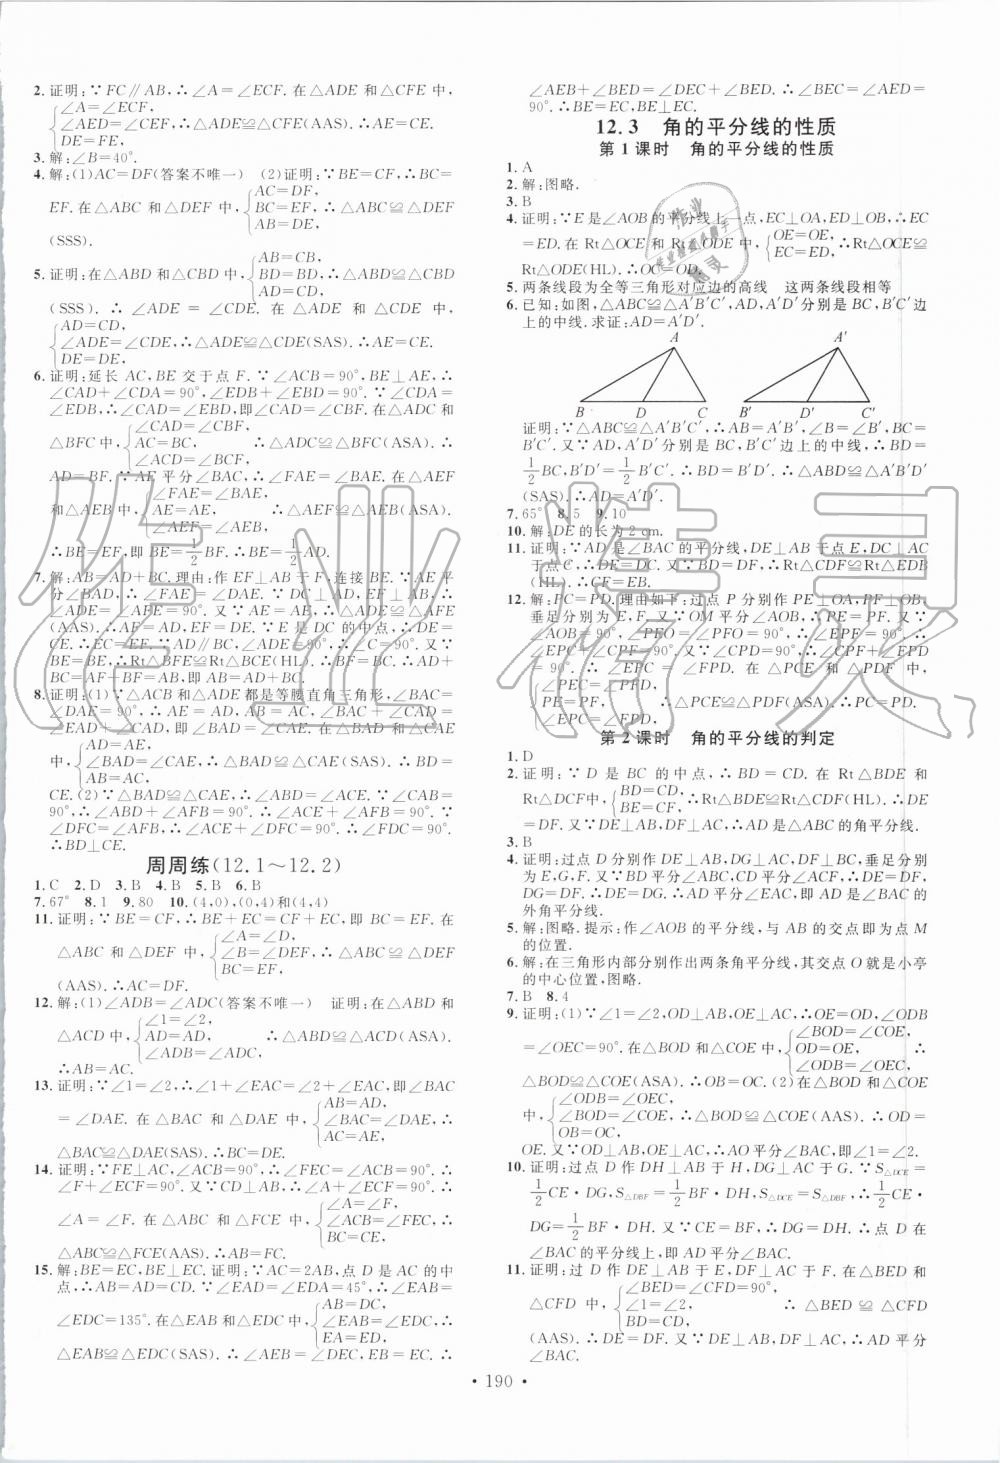 2. 证明:∵FC∥AB,∴∠A=∠ECF. 在△ADE 和△CFE 中,
∠A=∠ECF,
∠AED=∠CEF,∴△ADE≌△CFE(AAS). ∴AE=CE.
DE=FE,
3. 解:∠B=40°.
4. 解:(1)AC=DF(答案不唯一) (2)证明:∵BE=CF,∴BC=
AC=DF,
EF. 在△ABC 和△DEF 中, BC=EF,∴△ABC≌△DEF
AB=DE,
(SSS).
AB=CB,
5. 证明:在△ABD 和△CBD 中, BD=BD,∴△ABD≌△CBD
AD=CD,
(SSS). ∴∠ADE=∠CDE. 在△ADE 和△CDE 中,
AD=CD,
∠ADE=∠CDE,∴△ADE≌△CDE(SAS). ∴AE=CE.
DE=DE,
6. 证明:延长 AC,BE 交于点 F. ∵∠ACB=90°,BE⊥AE,∴
∠CAD+∠CDA=90°,∠EDB+∠EBD=90°. ∵∠CDA=
∠EDB,∴∠CAD=∠EBD,即∠CAD=∠CBF. 在△ADC 和
∠CAD=∠CBF,
△BFC 中, AC=BC, ∴△ADC≌△BFC(ASA). ∴
∠ACD=∠BCF,
AD=BF. ∵AE 平分∠BAC,∴∠FAE=∠BAE. 在△AEF
∠FAE=∠BAE,
和△AEB 中, AE=AE, ∴△AEF≌△AEB(ASA).
∠AEF=∠AEB,
∴BE=EF,即 BE=1/2 BF. ∴BE=1/2 AD.
7. 解:AB=AD+BC. 理由:作 EF⊥AB 于 F,连接 BE. ∵AE 平
分∠BAD,∴∠FAE=∠DAE. ∵DC⊥AD,EF⊥AB,∴
∠D=∠AFE=90°. 又∵AE=AE,∴△ADE≌△AFE
(AAS). ∴AF=AD,DE=FE. ∵E 是 DC 的中点,∴DE=
CE. ∴EC=EF. ∵AD∥BC,∠D=90°,∴∠C=90°. 又∵
BE=BE,∴Rt△BFE≌Rt△BCE(HL). ∴BF=BC. ∴AD+
BC=AF+BF=AB,即 AB=AD+BC.
8. 证明:(1)∵△ACB 和△ADE 都是等腰直角三角形,∠BAC=
∠DAE=90°,∴AE=AD,AB=AC,∠BAC+∠CAD=
∠EAD+∠CAD,即∠BAD=∠CAE. 在△BAD 和△CAE
AD=AE,
中, ∠BAD=∠CAE,∴△BAD≌△CAE(SAS). ∴BD=
AB=AC,
CE. (2)∵△BAD≌△CAE,∴∠ABD=∠ACE. ∵∠CAB=
90°,∴∠ABD+∠AFB=90°. ∴∠ACE+∠AFB=90°. ∵
∠DFC=∠AFB,∴∠ACE+∠DFC=90°. ∴∠FDC=90°.
∴BD⊥CE.
周周练(12.1～12.2)
1. C 2. D 3. B 4. B 5. B 6. B
7. 67° 8. 1 9. 80 10. (4,0),(0,4)和(4,4)
11. 证明:∵BE=CF,∴BE+EC=CF+EC,即 BC=EF. 在
∠A=∠D,
△ABC 和△DEF 中, ∠B=∠DEF,∴△ABC≌△DEF
BC=EF,
(AAS). ∴AC=DF.
12. 解:(1)∠ADB=∠ADC(答案不唯一) 证明:在△ABD 和
∠1=∠2,
△ACD 中, AD=AD, ∴△ABD≌△ACD(ASA).
∠ADB=∠ADC,
∴AB=AC.
13. 证明:∵∠1=∠2,∴∠1+∠EAC=∠2+∠EAC,即∠BAC
AB=AD,
=∠DAE. 在△BAC 和△DAE 中, ∠BAC=∠DAE,∴
AC=AE,
△BAC≌△DAE(SAS). ∴BC=DE.
14. 证明:∵FE⊥AC,∠ACB=90°,∴∠FEC=∠ACB=90°.
∴∠F+∠ECF=90°. 又∵CD⊥AB,∴∠A+∠ECF=90°. ∴
∠A=∠F,
∠A=∠F. 在△ABC 和△FCE 中, ∠ACB=∠FEC,∴
BC=CE,
△ABC≌△FCE(AAS). ∴AB=FC.
15. 解:BE=EC,BE⊥EC. 证明:∵AC=2AB,点 D 是 AC 的中
点,∴AB=AD=CD. ∵∠EAD=∠EDA=45°,∴∠EAB=
AB=DC,
∠EDC=135°. 在△EAB 和△EDC 中, ∠EAB=∠EDC,∴
EA=ED,
△EAB≌△EDC(SAS). ∴∠AEB=∠DEC,EB=EC. ∴
∠AEB+∠BED=∠DEC+∠BED. ∴∠BEC=∠AED=
90°. ∴BE=EC,BE⊥EC.
12.3 角的平分线的性质
第1课时 角的平分线的性质
1. A
2. 解:图略.
3. B
4. 证明:∵E 是∠AOB 的平分线上一点,EC⊥OA,ED⊥OB,∴EC
=ED. 在 Rt△OCE 和 Rt△ODE 中, OE=OE, ∴Rt△OCE≌
EC=ED,
Rt△ODE(HL). ∴OC=OD.
5. 两条线段为全等三角形对应边的高线 这两条线段相等
6. 已知:如图,△ABC≌△A′B′C′,AD,A′D′分别是 BC,B′C′边
上的中线. 求证:AD=A′D′.
A A′
B D C B′ D′ C′
证明:∵△ABC≌△A′B′C′,∴AB=A′B′,∠B=∠B′,BC=
B′C′. 又∵AD,A′D′分别是 BC,B′C′边上的中线,∴BD=
1/2 BC,B′D′=1/2 B′C′. ∴BD=B′D′. ∴△ABD≌△A′B′D′
(SAS). ∴AD=A′D′.
7. 65° 8. 5 9. 10
10. 解:DE 的长为 2 cm.
11. 证明:∵AD 是∠BAC 的平分线,DE⊥AB 于点 E,DC⊥AC
于点 C,∴DE=DC. 又∵DF=DB,∴Rt△CDF≌Rt△EDB
(HL). ∴CF=EB.
12. 解:PC=PD. 理由如下:过点 P 分别作 PE⊥OA,PF⊥OB,
垂足分别为 E,F. 又∵OM 平分∠AOB,∴PE=PF. 又∵
∠AOB=90°,∠PEO=∠PFO=90°,∴∠EPF=90°. ∴
∠EPC+∠CPF=90°. 又∵∠CPD=90°,∴∠CPF+∠FPD
=90°. ∴∠EPC=∠FPD. 在△PCE 和△PDF 中,
∠PEC=∠PFD,
PE=PF, ∴△PCE≌△PDF(ASA). ∴PC=PD.
∠EPC=∠FPD,
第2课时 角的平分线的判定
1. D
2. 证明:∵D 是 BC 的中点,∴BD=CD. 在 Rt△BDE 和
Rt△DCF中, BD=CD, ∴Rt△BDE≌Rt△CDF(HL). ∴
BE=CF,
DE=DF. 又∵DE⊥AB,DF⊥AC,∴AD 是△ABC 的角平分线.
3. B
4. 证明:过点 D 分别作 DE⊥AB,DG⊥AC,DF⊥BC,垂足分别为
E,G,F. 又∵BD 平分∠ABC,CD 平分∠ACF,∴DE=DF,
DG=DF. ∴DE=DG. ∴AD 平分∠EAC,即 AD 是∠BAC 的
外角平分线.
5. 解:图略. 提示:作∠AOB 的平分线,与 AB 的交点即为点 M
的位置.
6. 解:在三角形内部分别作出两条角平分线,其交点 O 就是小亭
的中心位置,图略.
7. B 8. 4
9. 证明:(1)∵∠1=∠2,OD⊥AB,OE⊥AC,∴OE=OD,∠ODB
∠BOD=∠COE,
=∠OEC=90°. 在△BOD 和△COE 中, OD=OE, ∴
∠ODB=∠OEC,
△BOD≌△COE(ASA). ∴OB=OC. (2)在△BOD 和△COE
∠ODB=∠OEC,
中, ∠BOD=∠COE,∴△BOD≌△COE(AAS). ∴OD=
OB=OC,
OE. 又∵OD⊥AB,OE⊥AC,∴AO 平分∠BAC,即∠1=∠2.
10. 证明:过点 D 作 DH⊥AB 于 H,DG⊥AC 于 G. ∵S△DCE
=1/2 CE·DG,S△DBF=1/2 BF·DH,S△DCE=S△DBF,∴1/2 CE·
DG=1/2 BF·DH. 又∵CE=BF,∴DG=DH. ∴点 D 在
∠BAC 的平分线上,即 AD 平分∠BAC.
11. 证明:过 D 作 DE⊥AB 于 E,DF⊥AC 于 F. 在△BED 和
∠BED=∠CFD=90°,
△CFD 中, ∠1=∠2, ∴△BED≌△CFD
BD=CD,
(AAS). ∴DE=DF. 又∵DE⊥AB,DF⊥AC,∴AD 平分
∠BAC.
· 190 ·
作业精灵